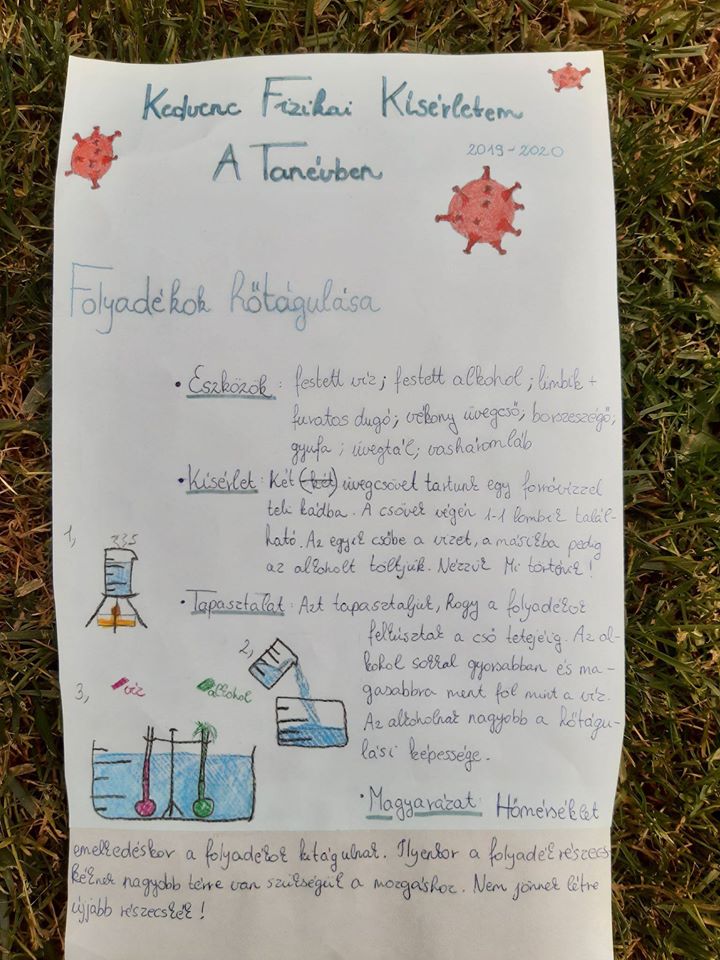 Kedvenc Fizikai Kísérletem
A Tanévben
2019-2020
Folyadékok hőtágulása
• Eszközök: festett víz; festett alkohol; lombik +
furatos dugó; vékony üvegcső; borszeszégő;
gyufa; üvegtál; vasháromláb
• Kísérlet: Két (két) üvegcsövet tartunk egy forróvízzel
teli kádba. A csövek végén 1-1 lombik talál-
ható. Az egyik csőbe a vizet, a másikba pedig
az alkoholt töltjük. Nézzük Mi történik!
1,
• Tapasztalat: Azt tapasztaljuk, hogy a folyadékok
felkúsztak a cső tetejéig. Az al-
kohol sokkal gyorsabban és ma-
gasabbra ment föl mint a víz.
Az alkoholnak nagyobb a hőtágu-
lási képessége.
2,
3,
víz
alkohol
• Magyarázat: Hőmérséklet
emelkedéskor a folyadékok kitágulnak. Ilyenkor a folyadék részecs-
kéknek nagyobb térre van szükségük a mozgáshoz. Nem jönnek létre
újjabb részecskék!